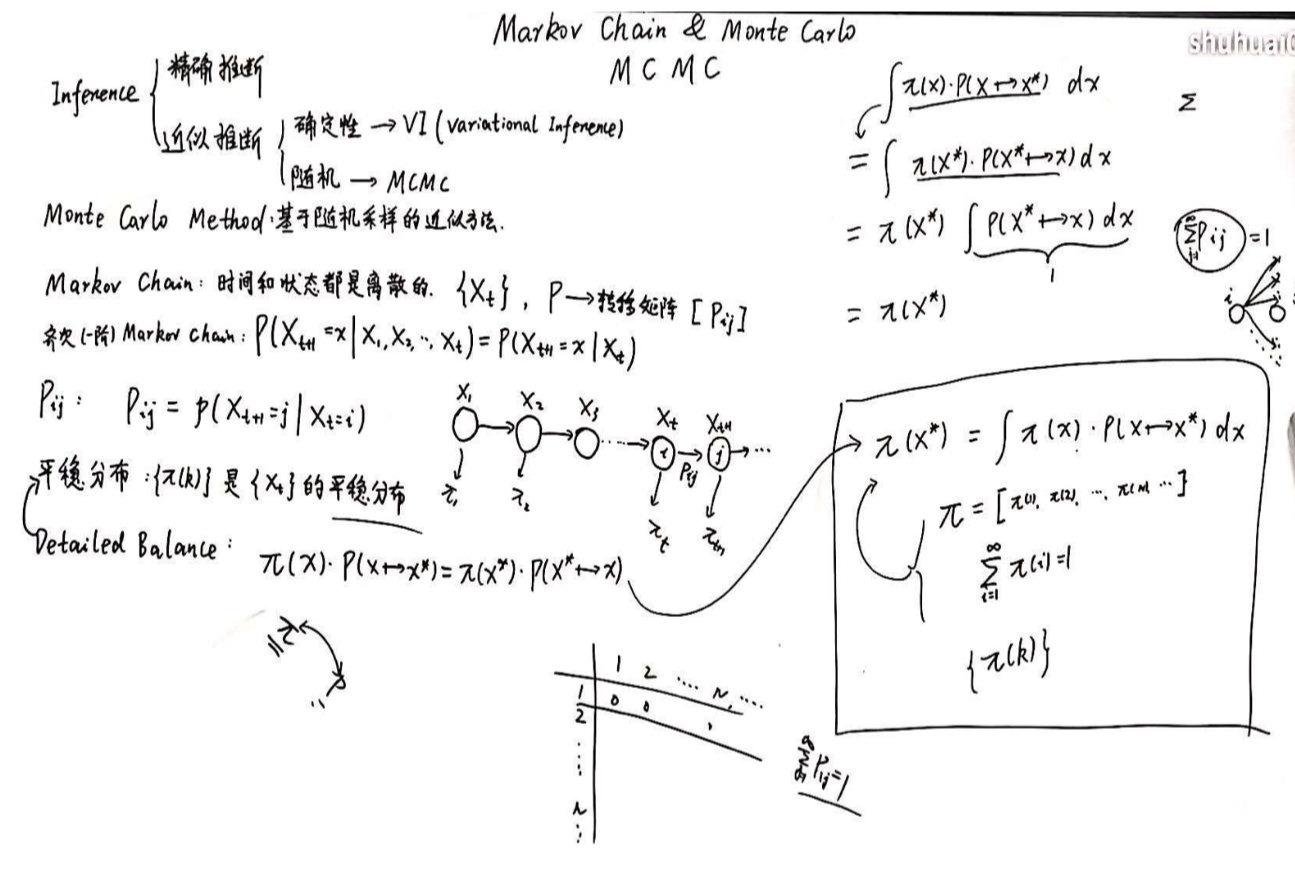 Markov Chain & Monte Carlo
MCMC
shuhuai
Inference
精确推断
近似推断
确定性 → VI (Variational Inference)
随机 → MCMC
Monte Carlo Method: 基于随机采样的近似方法.
Markov Chain: 时间和状态都是离散的. {X_t}, P → 转移矩阵 [P_ij]
齐次(一阶) Markov Chain: P(X_{t+1}=x | X_1, X_2, ..., X_t) = P(X_{t+1}=x | X_t)
P_ij: P_ij = p(X_{t+1}=j | X_t=i)
X_1 X_2 X_3 X_t X_{t+1}
→ → ····→ i → j → ···
P_ij
π_1 π_2 π_t π_{t+1}
平稳分布: {π(k)} 是 {X_t} 的平稳分布
Detailed Balance: π(x)·P(x↦x*) = π(x*)·P(x*↦x)
π P
1 2 ···· N, ····
1 0 0
2
N
∑ P_ij = 1
∫ π(x)·P(x↦x*) dx
Σ
= ∫ π(x*)·P(x*↦x) dx
= π(x*) ∫ P(x*↦x) dx
1
= π(x*)
∑_{j=1}^∞ P_ij = 1
i
π(x*) = ∫ π(x)·P(x↦x*) dx
π = [π(1), π(2), ···, π(n) ···]
∑_{i=1}^∞ π(i) = 1
{π(k)}